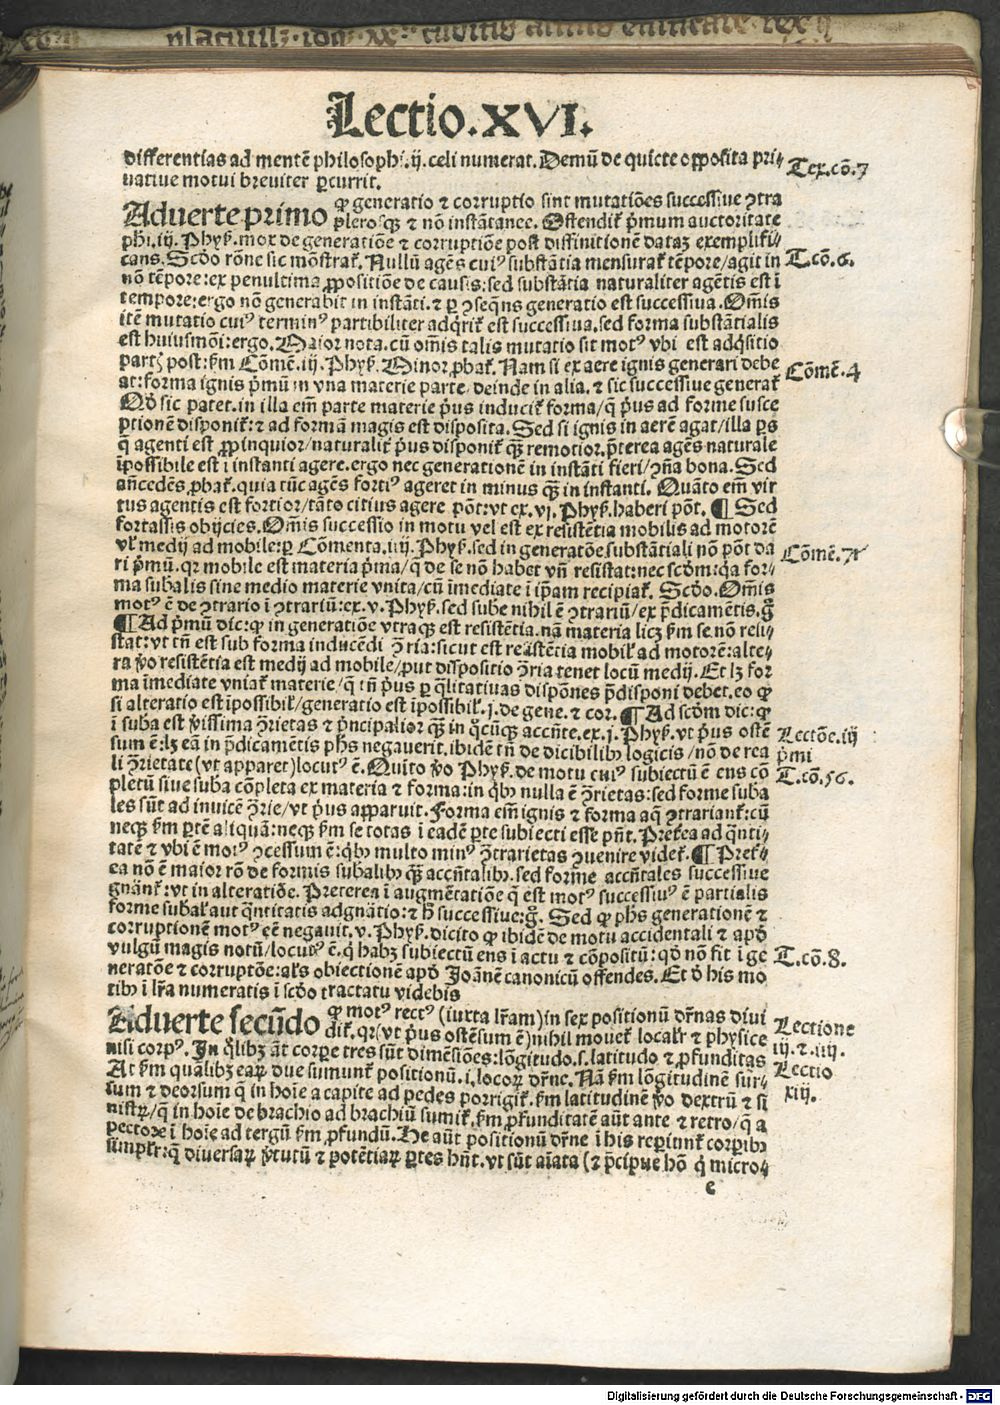 Lectio.XVI.
differentias ad mentē philosophi.ij.celi numerat.Demū de quiete opposita pri⸗
uatiue motui breuiter ꝑcurrit.
Tex.cō.7
Aduerte primo ꝙ generatio ⁊ corruptio sint mutatiōes successiue ꝯtra
plerosqꝫ ⁊ nō instātanee. Ostendit᷑ pͥmum auctoritate
phi.iij. Phyſ.mox de generatiōe ⁊ corruptiōe post diffinitionē dataꝫ exemplifi⸗
cans. Scđo rōne sic mōstrat᷑. Nullū agēs cuiꝰ substātia mensurat᷑ tēpore/agit in
T.cō.6.
nō tēpore:ex penultima ꝓpositiōe de causis:sed substātia naturaliter agētis est ī
tempore:ergo nō generabit in instāti.⁊ ꝑ ꝯseqn̄s generatio est successiua.Om̄is
itē mutatio cuiꝰ terminꝰ partibiliter adqͥrit᷑ est successiua.sed forma substātialis
est huiusmōi:ergo.Maior nota.cū om̄is talis mutatio sit motꝰ vbi est adqͥsitio
partꝭ post:ẜm Cōmē.iij.Phyſ.Minor ꝓbat᷑.Nam si ex aere ignis generari debe
Cōmē.4
at:forma ignis pͥmū in vna materie parte/deinde in alia.⁊ sic successiue generat᷑
Qđ sic patet.in illa em̄ parte materie pͥus inducit᷑ forma/q̄ pͥus ad forme susce
ptionē disponit᷑:⁊ ad formā magis est disposita.Sed si ignis in aerē agat/illa ꝑs
q̄ agenti est ꝓpinquior/naturalit᷑ pͥus disponit᷑ qꝫ̄ remotior.p̄terea agēs naturale
īpossibile est ī instanti agere.ergo nec generationē in instāti fieri/ꝯn̄a bona.Sed
an̄cedēs ꝓbat᷑.quia tūc agēs fortiꝰ ageret in minus qꝫ̄ in instanti. Quāto em̄ vir
tus agentis est fortior/tāto citius agere pōt:vt ex.vj.Phyſ.haberi pōt. ¶ Sed
fortassis obijcies.Om̄is successio in motu vel est ex resistētia mobilis ad motorē
vł medij ad mobile:ꝑ Cōmenta.iiij.Phyſ.sed in generatōe substātiali nō pōt da
Cōmē.71
ri pͥmū.qꝛ mobile est materia pͥma/q̄ de se nō habet vn̄ resistat:nec scđm:qꝛ for⸗
ma subalis sine medio materie vnita/cū īmediate ī ip̄am recipiat᷑. Scđo.Om̄is
motꝰ ē de ꝯtrario ī ꝯtrariū:ex.v.Phyſ.sed sube nihil ē ꝯtrariū/ex p̄dicamētis.g̊
¶Ad pͥmū dic:ꝙ in generatiōe vtraqꝫ est resistētia.nā materia licꝫ ẜm se nō resi⸗
stat:vt tn̄ est sub forma inducēdi ꝯ̄ria:sicut est resistētia mobił ad motorē:alte⸗
ra ꝟo resistētia est medij ad mobile/ꝓut dispositio ꝯ̄ria tenet locū medij.Et lꝫ for
ma īmediate vniat᷑ materie/q̄ tn̄ pͥus ꝑ qͣlitatiuas dispōnes p̄disponi debet.eo ꝙ
si alteratio est īpossibił/generatio est īpossibił.j.de gene.⁊ cor.¶Ad scđm dic:ꝙ
ī suba est ꝟissima ꝯ̄rietas ⁊ pͥncipalior qꝫ̄ in qͦcūqꝫ accn̄te.ex.j.Phyſ.vt pͥus ostē
Lectōe.iij
sum ē:lꝫ eā in p̄dicamētis ph̄s negauerit.ibidē tn̄ de dicibilibꝫ logicis/nō de rea
pͥmi
li ꝯ̄rietate(vt apparet)locutꝰ ē.Quīto ꝟo Phyſ.de motu cuiꝰ subiectū ē ens cō
T.cō.56.
pletū siue suba cōpleta ex materia ⁊ forma:in qͥbꝫ nulla ē ꝯ̄rietas:sed forme suba
les sūt ad inuicē ꝯ̄rie/vt pͥus apparuit.Forma em̄ ignis ⁊ forma aq̄ ꝯtrariant᷑:cū
neqꝫ ẜm ꝑtē aliquā:neqꝫ ẜm se totas ī eadē ꝑte subiecti esse pn̄t.Preťea ad qͣnti⸗
tatē ⁊ vbi ē motꝰ ꝯcessum ē:qͥbꝫ multo minꝰ ꝯ̄trarietas ꝯuenire videt᷑.¶Preť⸗
ea nō ē maior rō de formis subalibꝫ qꝫ̄ accn̄talibꝫ.sed forme accn̄tales successiue
gnān̄t᷑:vt in alteratiōe.Preterea ī augmētatiōe q̄ est motꝰ successiuꝰ ē partialis
forme subał aut qͣntitatis adgnātio:⁊ h̄ successiue:g̊. Sed ꝙ ph̄s generationē ⁊
corruptionē motꝰ eē negauit.v.Phyſ.dicito ꝙ ibidē de motu accidentali ⁊ apđ
vulgū magis notū/locutꝰ ē.q̄ habꝫ subiectū ens ī actu ⁊ cōpositū:qđ nō fit ī ge
T.cō.8.
neratōe ⁊ corruptōe:al̄s obiectionē apđ Joānē canonicū offendes.Et đ his mo
tibꝫ ī lr̄a numeratis ī scđo tractatu videbis
Aduerte secūdo ꝙ motꝰ rectꝰ (iuxta lr̄am)in sex positionū dr̄nas diui
Lectione
dit᷑.qꝛ(vt pͥus ostēsum ē)nihil mouet᷑ localr̄ ⁊ physice
nisi corpꝰ.In qͦlibꝫ āt corꝑe tres sūt dimēsiōes:lōgitudo.s.latitudo ⁊ ꝓfunditas
iij.⁊.iiij.
At ẜm qualibꝫ eaꝝ due sumunt᷑ positionū.i.locoꝝ dr̄ne.Nā ẜm lōgitudinē sur⸗
Lectio
sum ⁊ deorsum q̄ in hoīe a capite ad pedes porrigit᷑.ẜm latitudinē ꝟo dextrū ⁊ si
xiij.
nistꝝ/q̄ in hoīe de brachio ad brachiū sumit᷑.ẜm ꝓfunditatē aūt ante ⁊ retro/q̄ a
pectore ī hoīe ad tergū ẜm ꝓfundū.He aūt positionū dr̄ne ī his reꝑiunt᷑ corꝑibꝫ
simpłr:q̄ diuersaꝝ ꝟtutū ⁊ potētiaꝝ ꝑtes hn̄t.vt sūt aīata (⁊ p̄cipue hō qͥ micro⸗
e
Digitalisierung gefördert durch die Deutsche Forschungsgemeinschaft - DFG